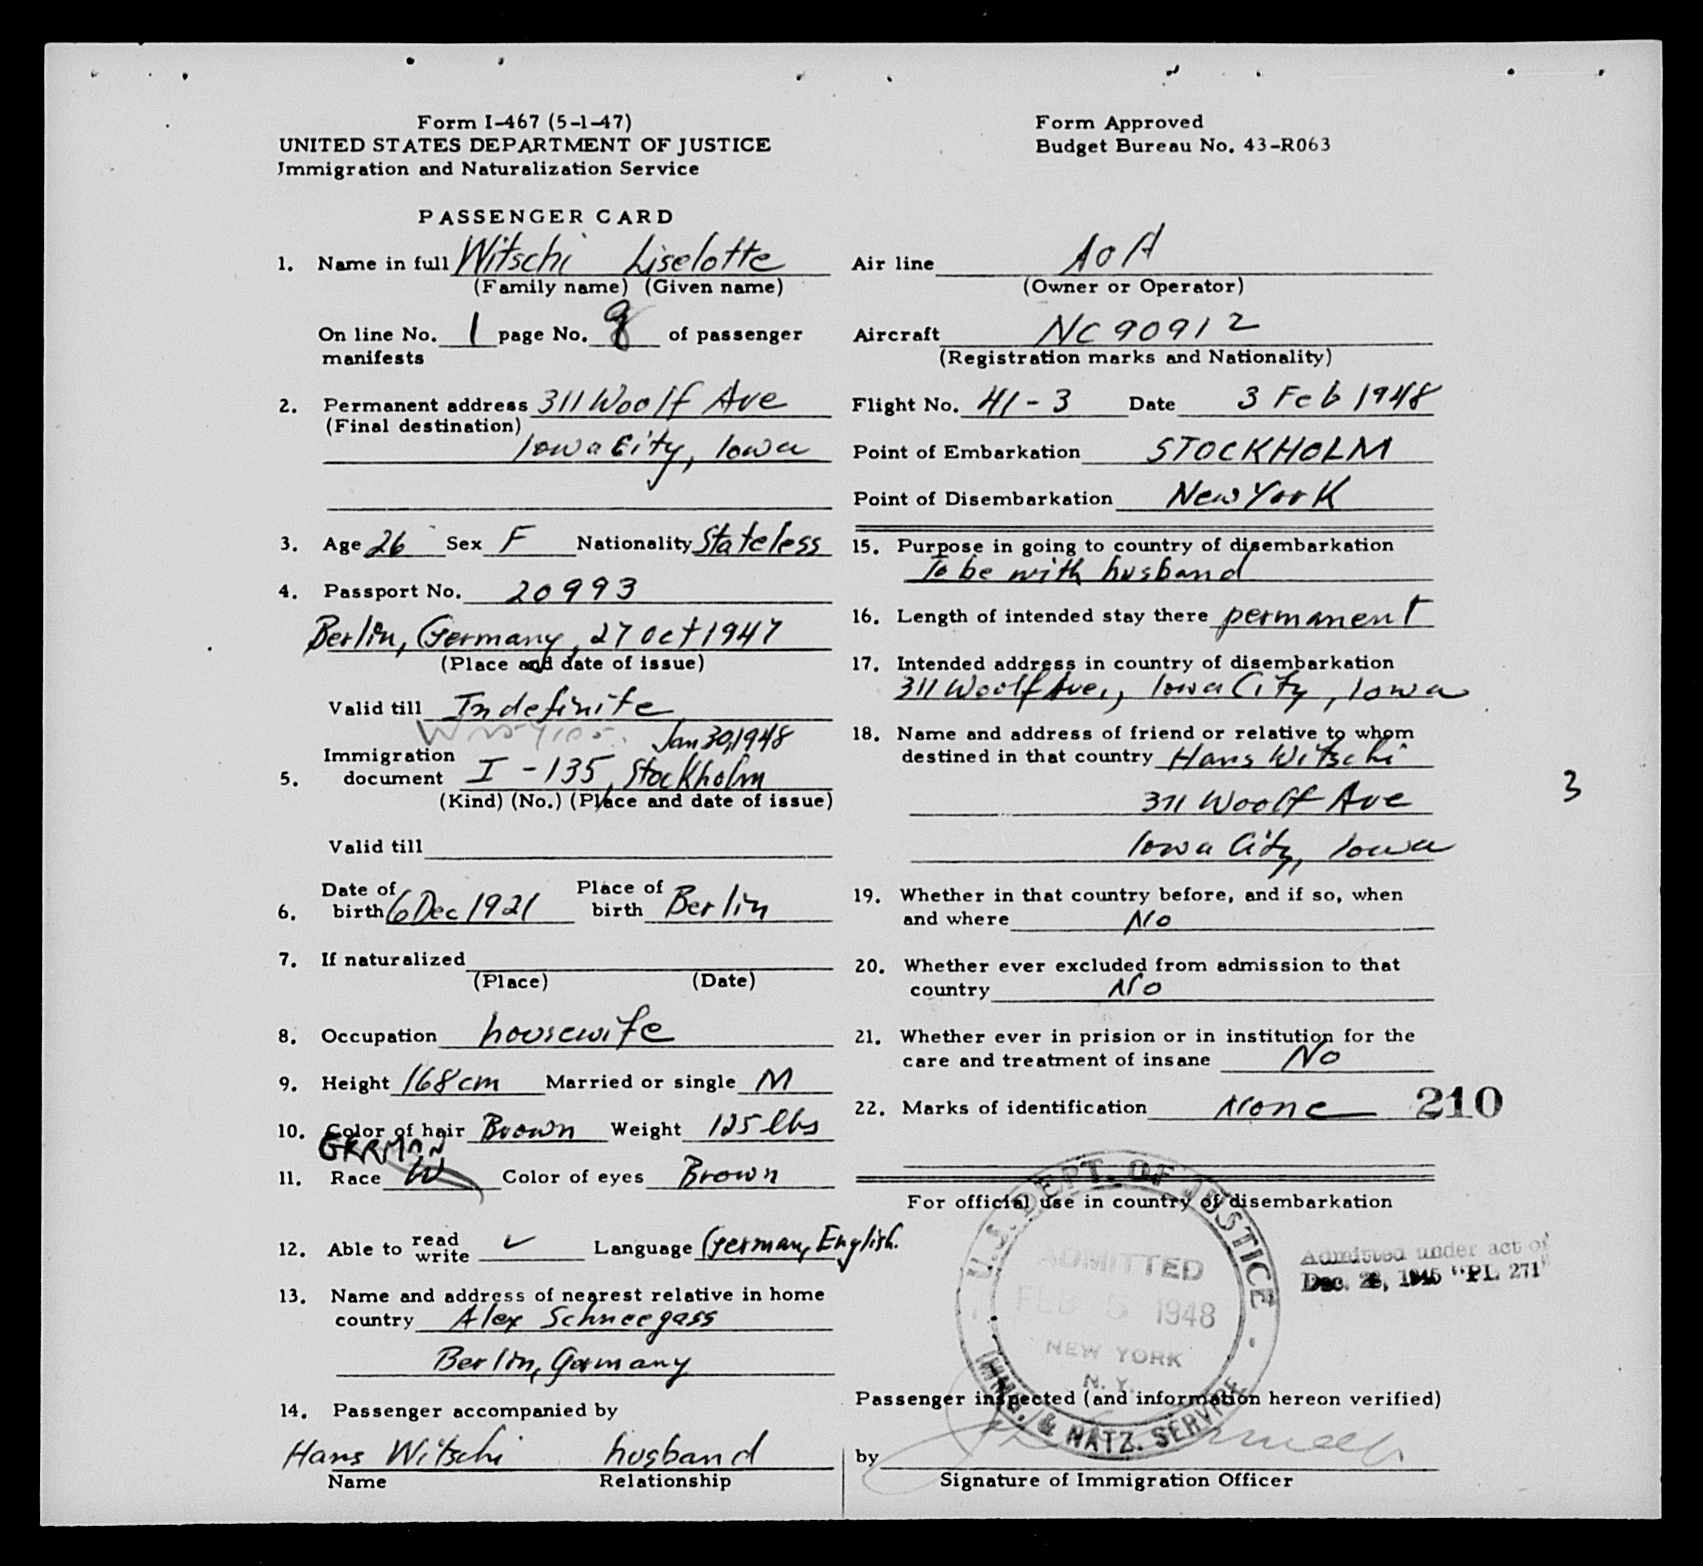 Form I-467 (5-1-47)
UNITED STATES DEPARTMENT OF JUSTICE
Immigration and Naturalization Service
Form Approved
Budget Bureau No. 43-R063
PASSENGER CARD
1. Name in full Witschi Liselotte
(Family name) (Given name)
On line No. 1 page No. 9 of passenger
manifests
2. Permanent address 311 Woolf Ave
(Final destination)
Iowa City, Iowa
3. Age 26 Sex F Nationality Stateless
4. Passport No. 20993
Berlin, Germany, 27 Oct 1947
(Place and date of issue)
Valid till Indefinite
Jan 30, 1948
Immigration
5. document I-135, Stockholm
(Kind) (No.) (Place and date of issue)
Valid till
Date of Place of
6. birth 6 Dec 1921 birth Berlin
7. If naturalized
(Place) (Date)
8. Occupation housewife
9. Height 168 cm Married or single M
10. Color of hair Brown Weight 125 lbs
GERMAN
11. Race W Color of eyes Brown
12. Able to read write ✓ Language German, English.
13. Name and address of nearest relative in home
country Alex Schneegass
Berlin, Germany
14. Passenger accompanied by
Hans Witschi husband
Name Relationship
Air line AOA
(Owner or Operator)
Aircraft NC 90912
(Registration marks and Nationality)
Flight No. 41-3 Date 3 Feb 1948
Point of Embarkation STOCKHOLM
Point of Disembarkation New York
15. Purpose in going to country of disembarkation
To be with husband
16. Length of intended stay there permanent
17. Intended address in country of disembarkation
311 Woolf Ave., Iowa City, Iowa
18. Name and address of friend or relative to whom
destined in that country Hans Witschi
311 Woolf Ave
Iowa City, Iowa
3
19. Whether in that country before, and if so, when
and where No
20. Whether ever excluded from admission to that
country No
21. Whether ever in prision or in institution for the
care and treatment of insane No
22. Marks of identification None 210
For official use in country of disembarkation
U.S. DEPT. OF JUSTICE
ADMITTED
FEB 5 1948
NEW YORK
N. Y.
IMMG. & NATZ. SERVICE
Admitted under act of
Dec. 28, 1945 "PL 271"
Passenger inspected (and information hereon verified)
by
Signature of Immigration Officer